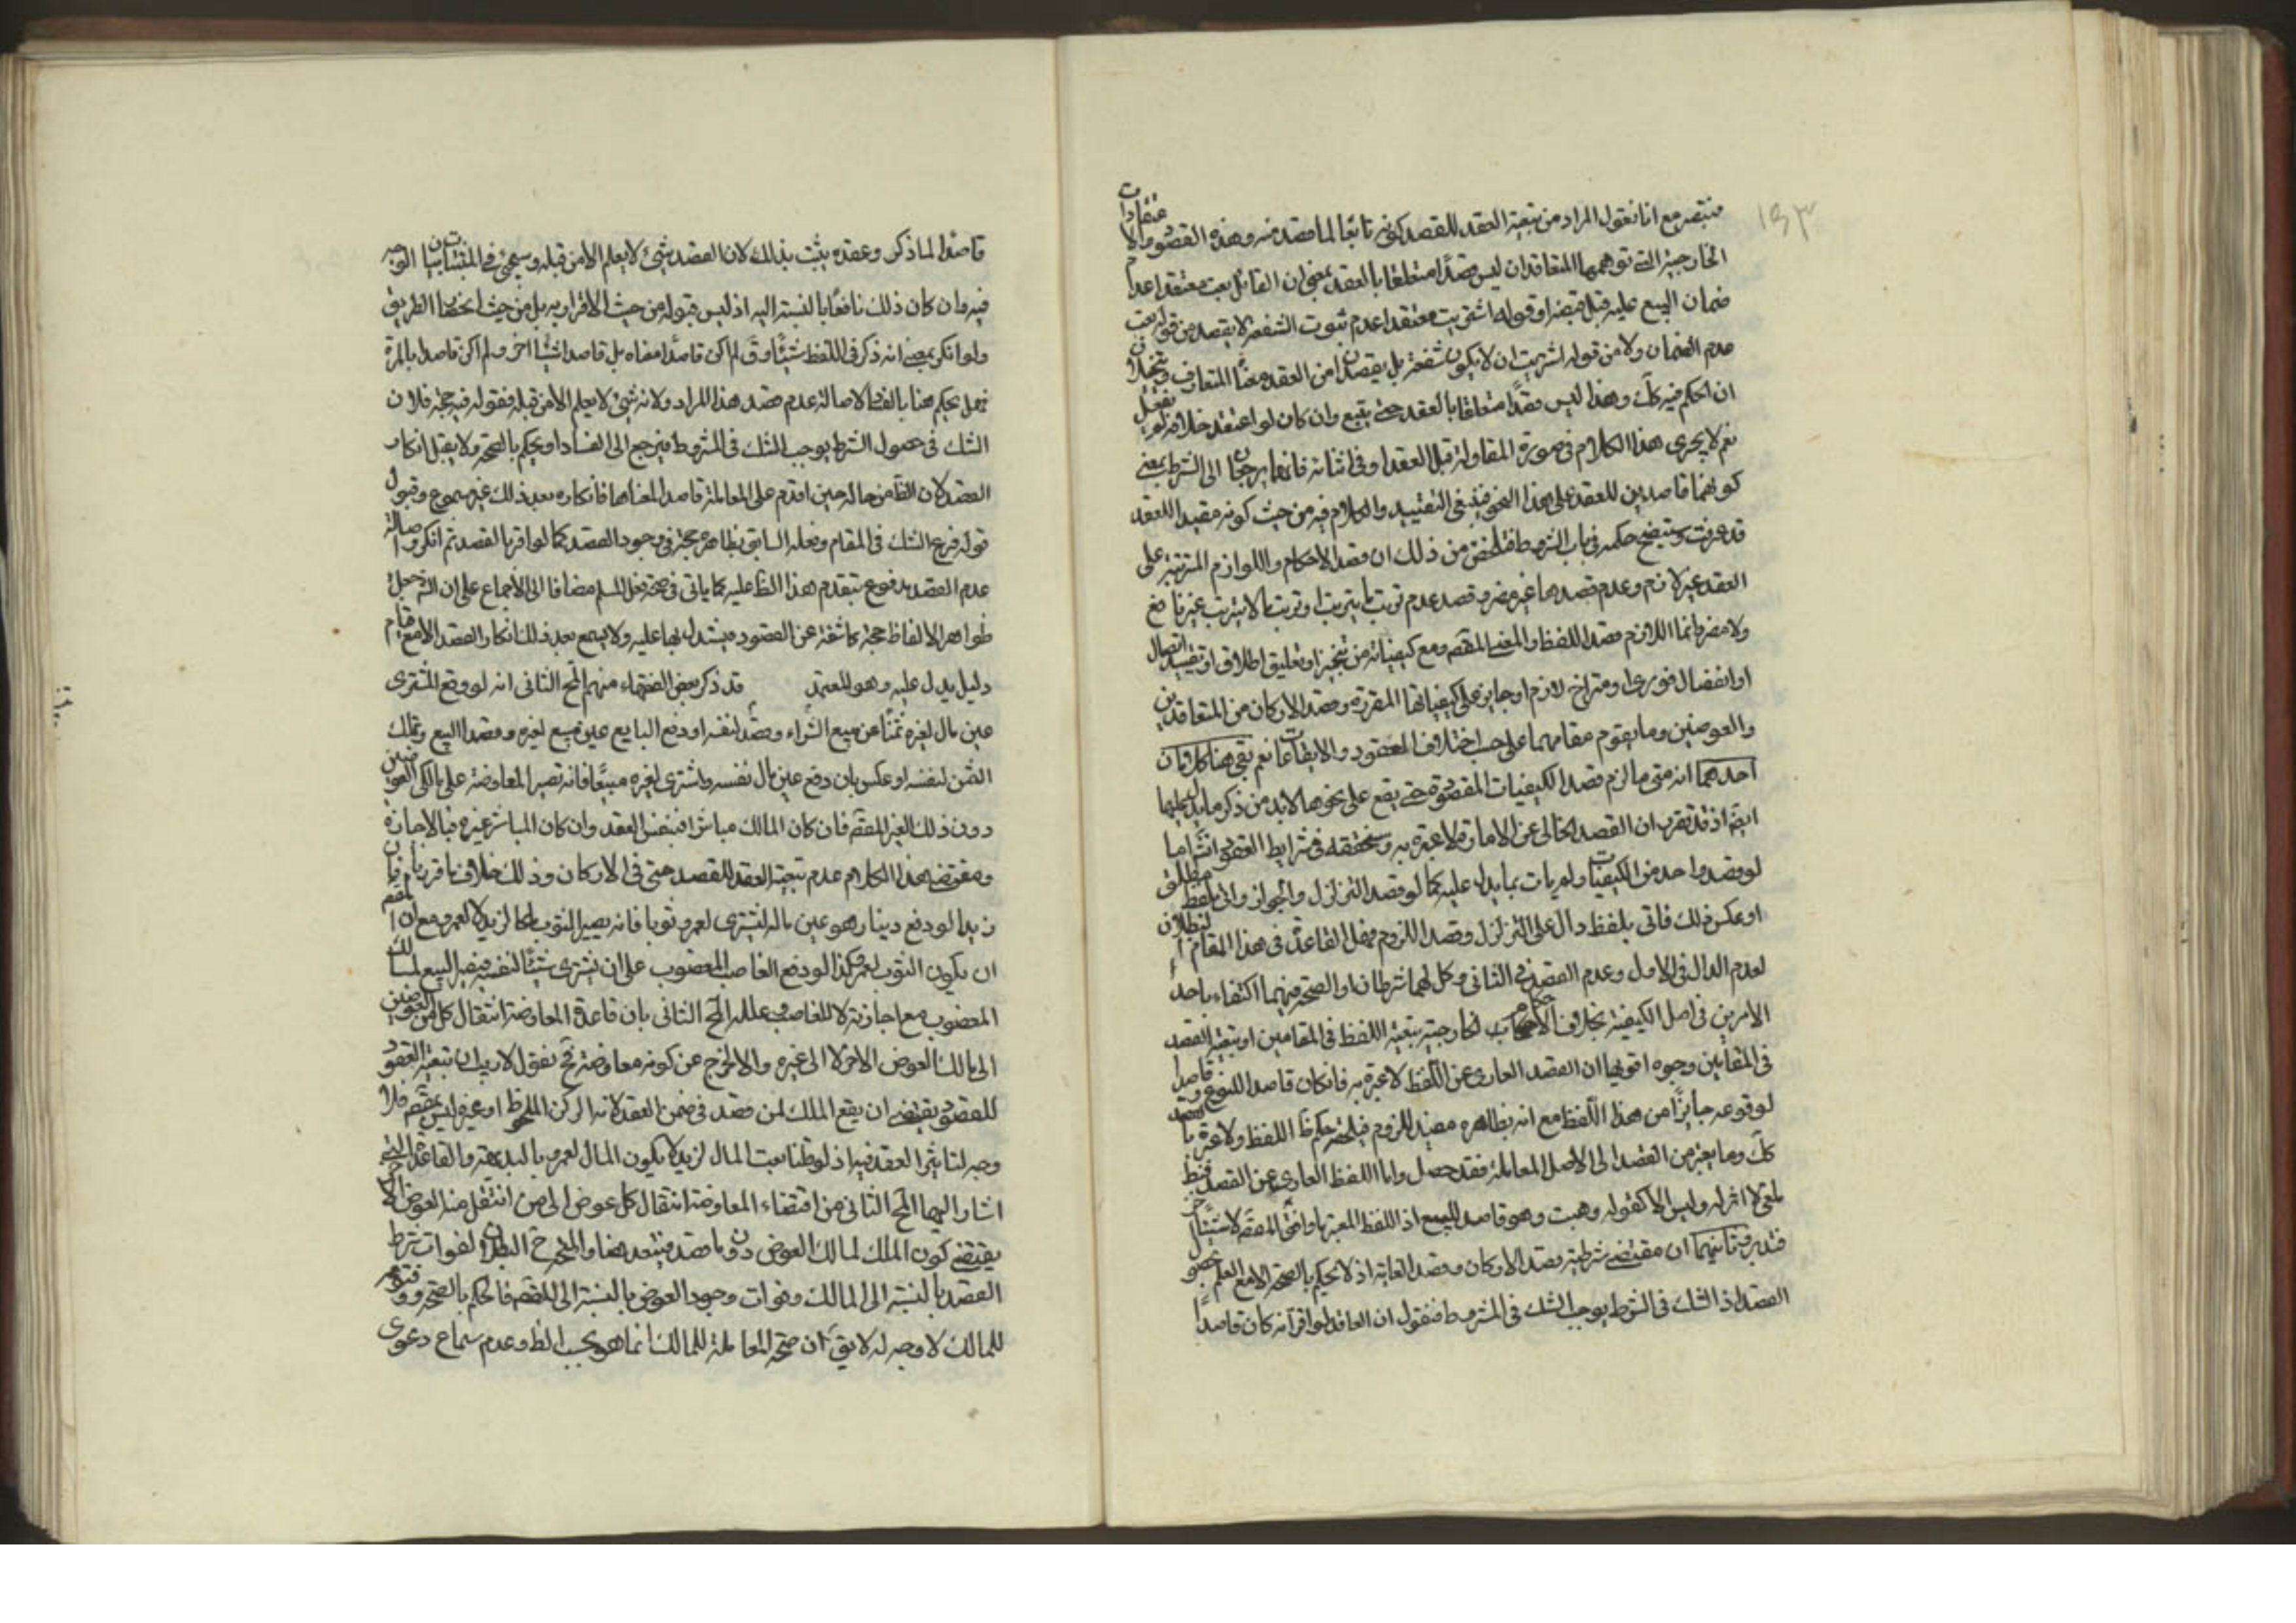 ١٥٣
فتبصر مع انا نقول المراد من تبعية العقد للقصد كونه تابعا لما قصد منه وهذه القصود والاعتقادات
الخارجية التي توهمها المتعاقدان ليس قصدا متعلقا بالعقد بمعنى ان القائل بعت معتقدا عدم
ضمان المبيع عليه قبل قبضه او قوله اشتريت معتقدا عدم ثبوت الشفعة لا يقصد من قوله بعت
عدم الضمان ولا من قوله اشتريت ان لا يكون شفعة بل يقصدان من العقد معناه المتعارف ويتخيلان
ان الحكم فيه كك وهذا ليس قصدا متعلقا بالعقد حتى يتبع وان كان لو اعتقد خلافه لم يفعل
نعم لا يجرى هذا الكلام في صورة المقاولة قبل العقد او في اثنائه فانهما يرجعان الى الشرط بمعنى
كونهما قاصدين للعقد على هذا النحو فينبغي التقييد والكلام فيه من حيث كونه مقيدا للعقد
قد عرفت وستيضح حكمه في باب الشروط فتلخص من ذلك ان قصد الاحكام واللوازم المترتبة على
العقد غير لازم وعدم قصدها غير مضر وقصد عدم ترتب ما يترتب او ترتب ما لا يترتب غير نافع
ولا مضر وانما اللازم قصد اللفظ والمعنى المقصود مع كيفياته من تنجيز او تعليق اطلاق او تقييد اتصال
او انفصال فورى او متراخ لازم او جايز على كيفياتها المقررة وقصد الاركان من المتعاقدين
والعوضين وما يقوم مقامهما على حسب اختلاف العقود والايقاعات نعم بقى هنا كلامان
احدهما انه متى ما لزم قصد الكيفيات المقصودة حتى يقع على نحوها لابد من ذكر ما يدل عليها
ايضا اذ قد تقرر ان القصد الخالى عن الامارة لا عبرة به وسنحققه في شرايط العقود انش اما
لو قصد واحد من الكيفيات ولم يات بما يدل عليه كما لو قصد التزلزل والجواز واتى بلفظ مطلق
او عكس ذلك فاتى بلفظ دال على التزلزل وقصد اللزوم فهل القاعدة في هذا المقام البطلان
لعدم الدال في الاول وعدم القصد في الثانى وكل لهما شرطان او الصحة فيهما اكتفاء باحد
الامرين في اصل الكيفية بخلاف الاحكام الخارجية بتبعية اللفظ في المقامين او بتبعية القصد
في المقامين وجوه اقويها ان القصد العارى عن اللفظ لا عبرة به فان كان قاصدا للنوع وقاصدا
لوقوعه جايزا من هذا اللفظ مع انه بظاهره مفيد للزوم فيلحقه حكم ظ اللفظ ولا عبرة بالقصد
كك وما يعتبر من القصد الى الاصل المعاملة فقد حصل واما اللفظ العارى عن القصد فقط
لغو لا اثر له وليس الا كقوله وهبت وهو قاصد للبيع اذ اللفظ المعتبر ما وافق القصد لا شيئا اخر
فتدبر وثانيهما ان مقتضى شرطية قصد الاركان وقصد الغاية اذ لا يحكم بالصحة الا مع العلم بحصول
القصد اذ الشك في الشرط يوجب الشك في المشروط فنقول ان العاقد لو اقر انه كان قاصدا
قاصدا لما ذكر وعقده يثبت بذلك لان القصد شئ لا يعلم الا من قبله وسيجئ في المتشابهات بيان الوجه
فيه وان كان ذلك نافعا بالنسبة اليه اذ ليس قبوله من حيث الاقرار به بل من حيث انحصار الطريق
ولو انكر بمعنى انه ذكر في اللفظ شيئا وق لم اكن قاصدا معناه بل قاصدا شيئا اخر ولم اكن قاصدا بالمرة
فهل يحكم هنا بالفساد لاصالة عدم قصد هذا المراد ولانه شئ لا يعلم الا من قبله فقوله فيه حجة فلان
الشك في حصول الشرط يوجب الشك في المشروط فيرجع الى الفساد او يحكم بالصحة ولا يقبل انكار
القصد لان الظ من حاله حين اقدم على المعاملة قاصدا لمعناها فانكاره بعد ذلك غير مسموع وقبول
قوله فرع الشك في المقام وفعله السابق بظاهره حجة في وجود القصد كما لو اقر بالقصد ثم انكر واصالة
عدم القصد مدفوع بتقدم هذا الظ عليه كما ياتى في صحة فعل المسلم مضافا الى الاجماع على ان الشرع جعل
ظواهر الالفاظ حجة كاشفة عن القصود فيستدل بها عليه ولا يسمع بعد ذلك انكار القصد الا مع قيام
دليل يدل عليه وهو المعتمد قد ذكر بعض الفقهاء منهم المح الثانى انه لو دفع المشترى
عين مال لغيره ثمنا عن مبيع الشراء وقصد لنفسه او دفع البايع عين مبيع لغيره وقصد البيع وتملك
الثمن لنفسه او عكس بان دفع عين مال نفسه واشترى لغيره مبيعا فانه تصير المعاوضة على مالكى العوضين
دون ذلك الغير المقصود فان كان المالك مباشرا فبنفس العقد وان كان المباشر غيره فبالاجازة
ومقتضى هذا الكلام عدم تبعية العقد للقصد حتى في الاركان وذلك خلاف ما قررنا فان
زيدا لو دفع دينار وهو عين ماله ليشترى لعمرو ثوبا فانه يصير الثوب ملكا لزيد لا لعمرو مع ان المقصود
ان يكون الثوب لعمرو وكذا لو دفع الغاصب المغصوب على ان يشترى شيئا لنفسه فيصير البيع لمالك
المغصوب مع اجازته لا للغاصب وعلله المح الثانى بان قاعدة المعاوضة انتقال كل من العوضين
الى مالك العوض الاخر لا الى غيره والا لخرج عن كونه معاوضة فح نقول لا ريب ان تبعية العقود
للقصود يقتضى ان يقع الملك لمن قصد في ضمن العقد لانه الركن الملحوظ او غيره ليس بمقصود فلا
وجه لتاثير العقد فيه اذ لو قلنا بعت المال لزيد لا يكون المال لعمرو بالبديهة والقاعدة التى
اشار اليها المح الثانى من اقتضاء المعاوضة انتقال كل عوض الى من انتقل منه العوض الاخر
يقتضى كون الملك لمالك العوض دون ما قصد فيتعد هنا والمتجه ح البطلان لفوات شرط
القصد بالنسبة الى المالك وفوات وجود العوض بالنسبة الى المقصود فالحكم بالصحة ووقوعه
للمالك لا وجه له لا يق ان صحة المعاملة للمالك انما هو بحسب الظ وعدم سماع دعوى